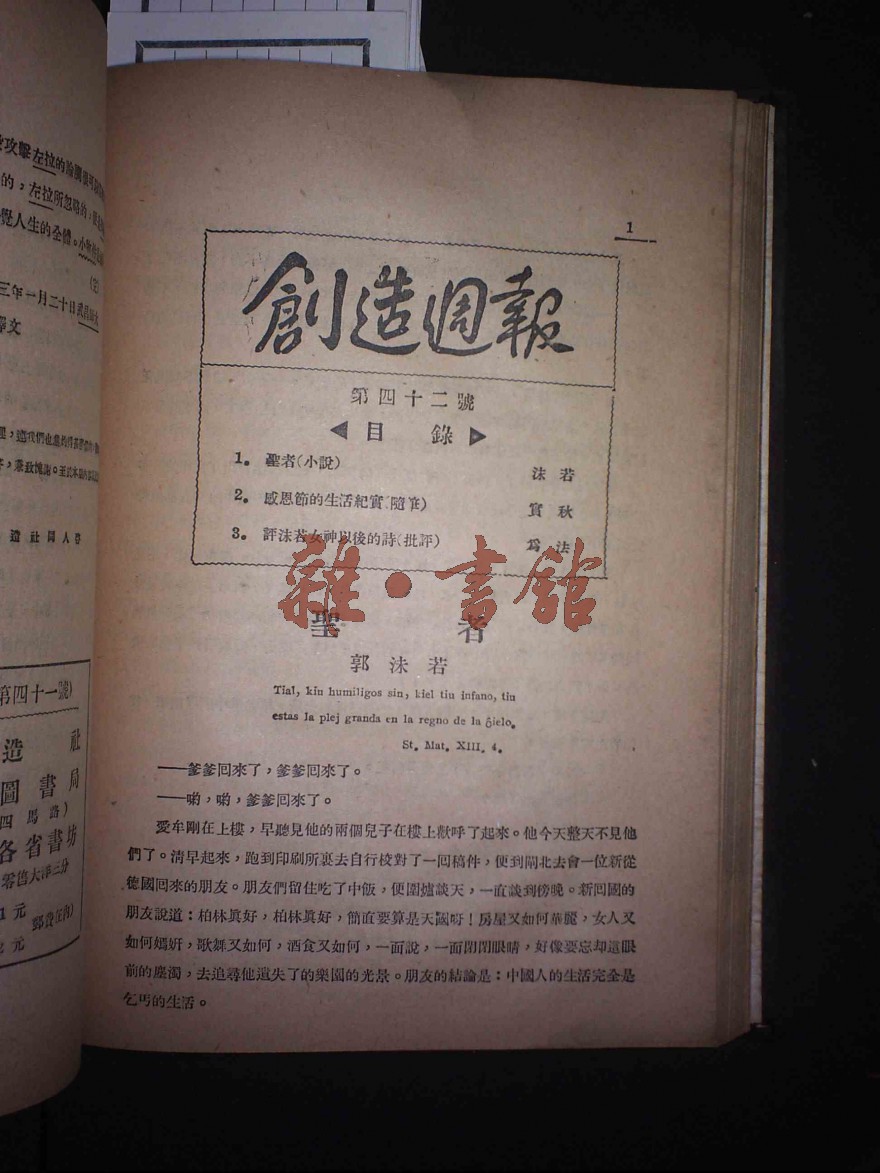 攻擊左拉的論調
的，左拉所忽略的，
覺人生的全體。
三年一月二十日武昌
譯文
登人同社造
第四十一號)
造 社
圖書局
四馬路)
各省書坊
零售大洋三分
1元
郵費在內)
元
1
創造週報
第四十二號
◀目 錄▶
1。 聖者(小說) 沫若
2。 感恩節的生活紀實(隨筆) 實秋
3。 評沫若女神以後的詩(批評) 爲法
雜·書館
聖 者
郭沫若
Tial, kiu humiligos sin, kiel tiu infano, tiu
estas la plej granda en la regno de la ĉielo.
St. Mat. XIII. 4.
——爹爹回來了，爹爹回來了。
——喲，喲，爹爹回來了。
愛牟剛在上樓，早聽見他的兩個兒子在樓上歡呼了起來。他今天整天不見他
們了。清早起來，跑到印刷所裏去自行校對了一回稿件，便到閘北去會一位新從
德國回來的朋友。朋友們留住吃了中飯，便圍爐談天，一直談到傍晚。新回國的
朋友說道：柏林眞好，柏林眞好，簡直要算是天國呀！房屋又如何華麗，女人又
如何嫣姸，歌舞又如何，酒食又如何，一面說，一面閉閉眼睛，好像要忘却這眼
前的塵濁，去追尋他遺失了的樂園的光景。朋友的結論是：中國人的生活完全是
乞丐的生活。